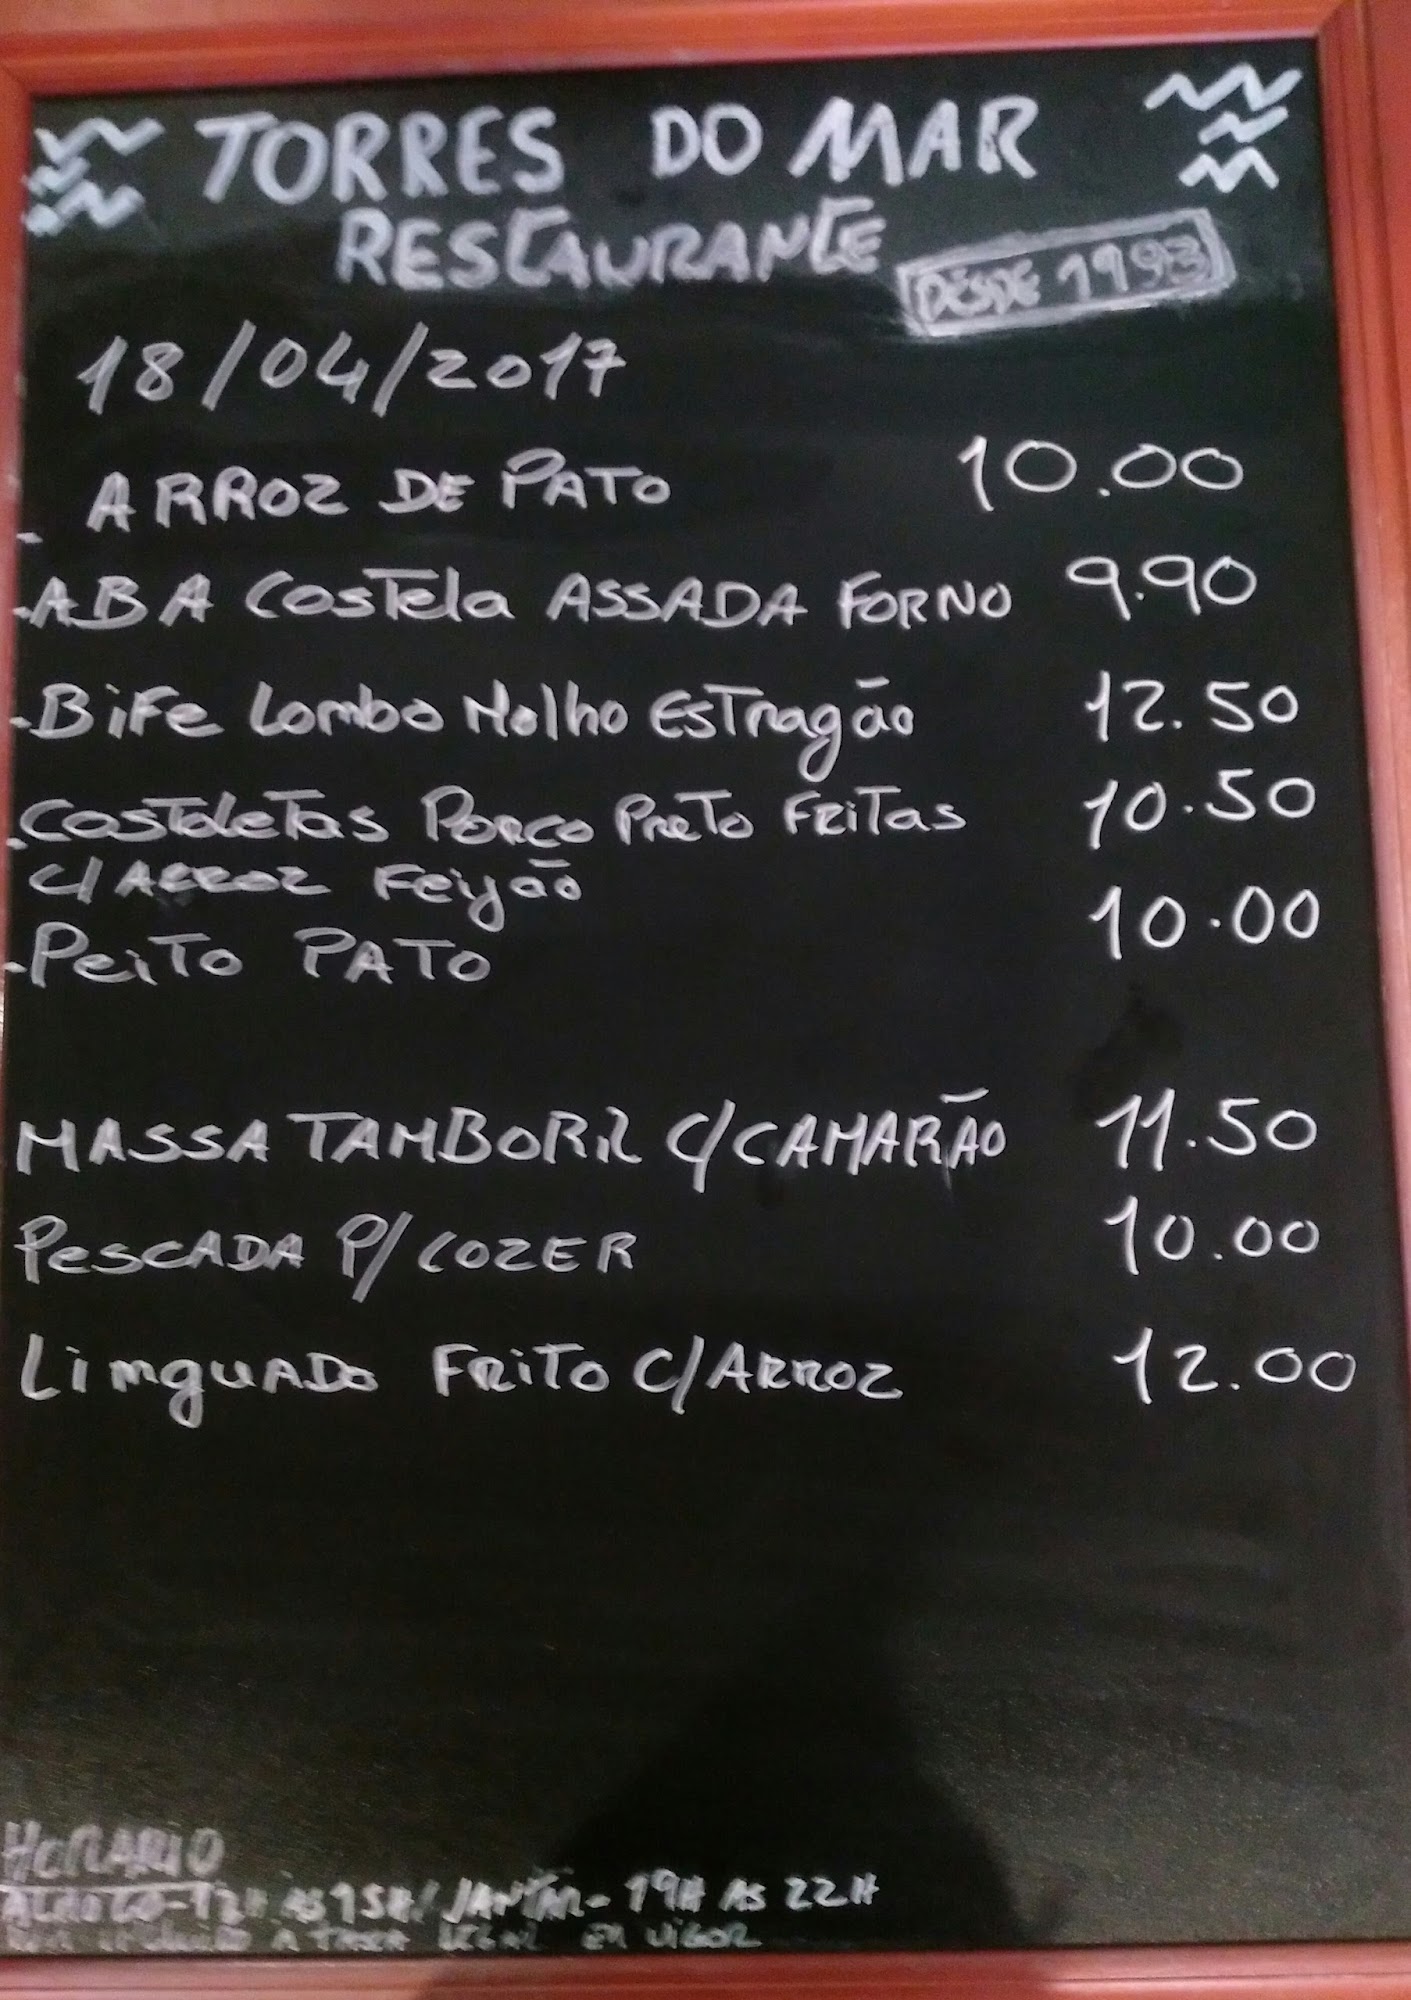 TORRES DO MAR
RESTAURANTE
DESDE 1993
18/04/2017
- ARROZ DE PATO 10.00
- ABA Costela ASSADA FORNO 9.90
- Bife Lombo Molho Estragão 12.50
- Costoletas Porco Preto Fritas 10.50
C/ ARROZ Feijão
- Peito PATO 10.00
MASSA TAMBORIL C/CAMARÃO 11.50
PESCADA P/ COZER 10.00
Limguado FRITO C/ARROZ 12.00
HORARIO
ALMOÇO-12H AS 15H/JANTAR-19H AS 22H
A TAXA LEGAL EM VIGOR